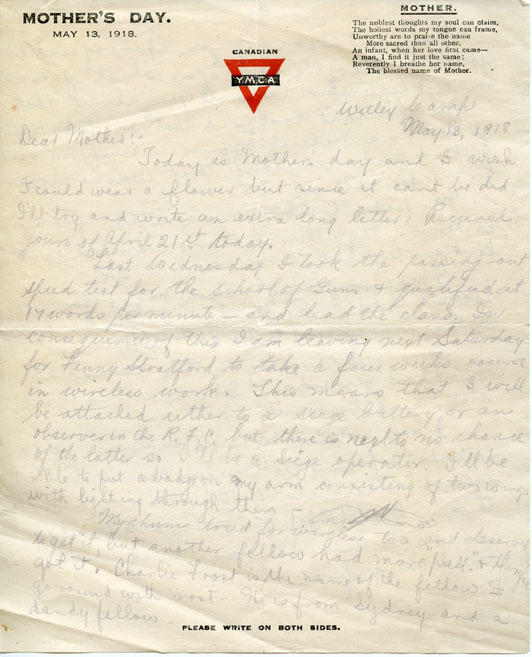 MOTHER'S DAY.
MAY 13, 1918.
MOTHER.
The noblest thoughts my soul can claim,
The holiest words my tongue can frame,
Unworthy are to praise the name
More sacred than all other.
An infant, when her love first came—
A man, I find it just the same;
Reverently I breathe her name,
The blessed name of Mother.
CANADIAN
Y.M.C.A.
Witley Camp
May 13, 1918
Dear Mother:-
Today is Mothers day and I wish
I could wear a flower but since it cant be did
I'll try and write an extra long letter. Received
yours of April 21st today.
Last Wednesday I took the passing-out
speed test for the School of Gunn & qualified at
17 words per minute - and lead the class. In
consequence of this I am leaving next Saturday
for Fenny Stratford to take a four weeks course
in wireless work. This means that I will
be attached either to a siege battery or an
observer in the R.F.C. but there is next to no chance
of the latter so I'll be a Siege operator. I'll be
able to put a badge on my arm consisting of two wings
with lightning through them -
My chum tried for wireless too and deserved
to get it but another fellow had more "pull" & they
got it. Charlie Frost is the name of the fellow I
go round with most - He is from Sydney and a
dandy fellow -
PLEASE WRITE ON BOTH SIDES.